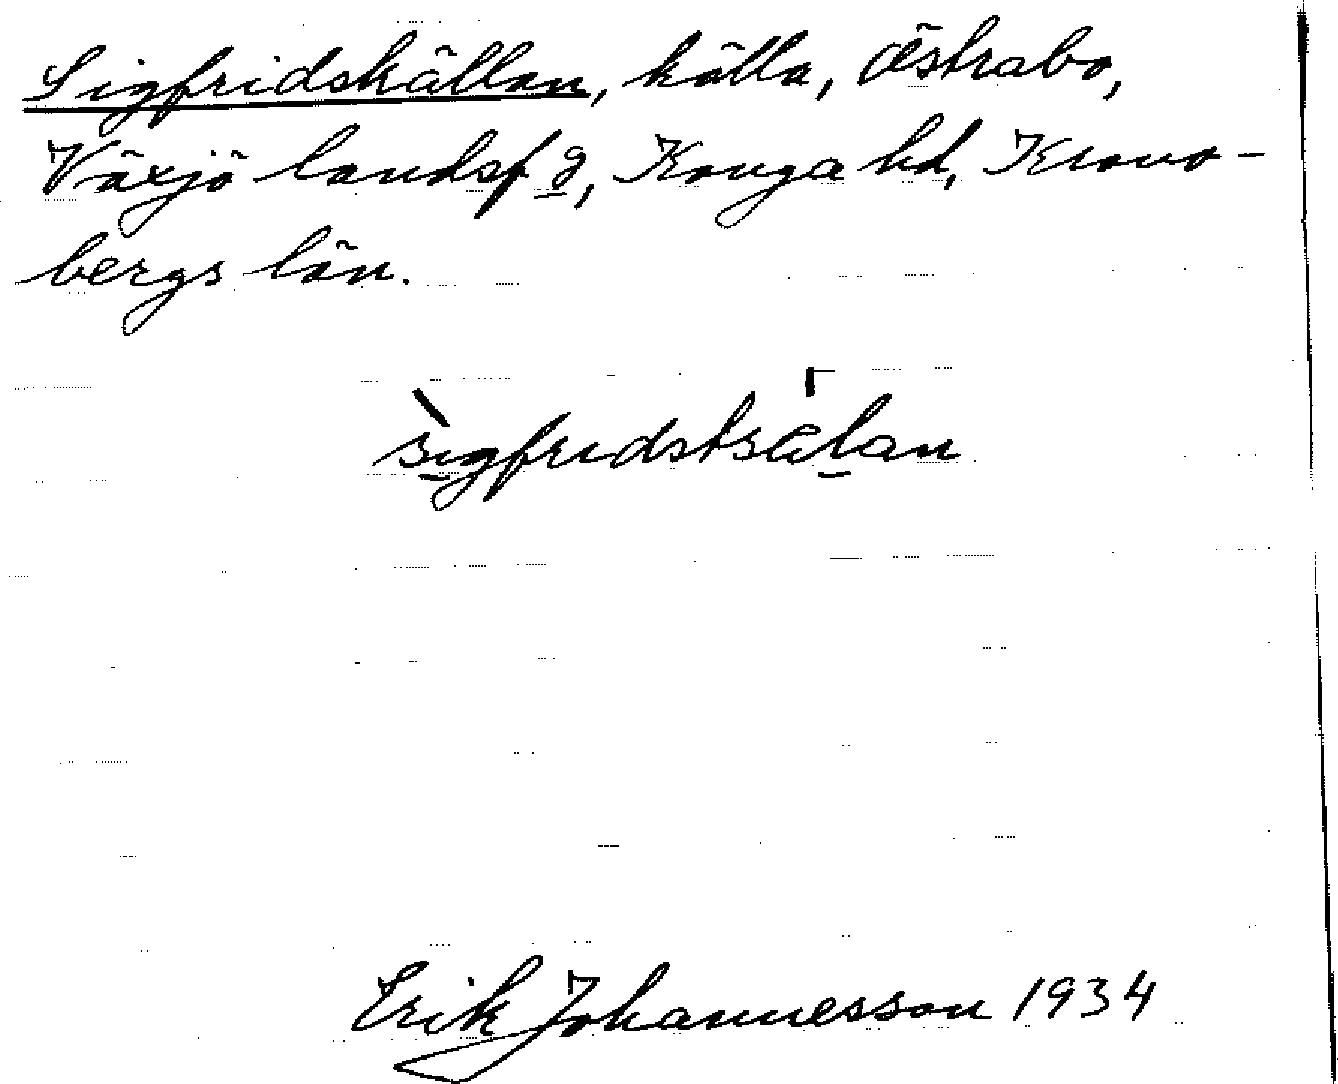 Sigfridskällan, källa, Östrabo,
Växjö landsfg, Konga hd, Krono-
bergs län.
sigfridstsälan
Erik Johannesson 1934